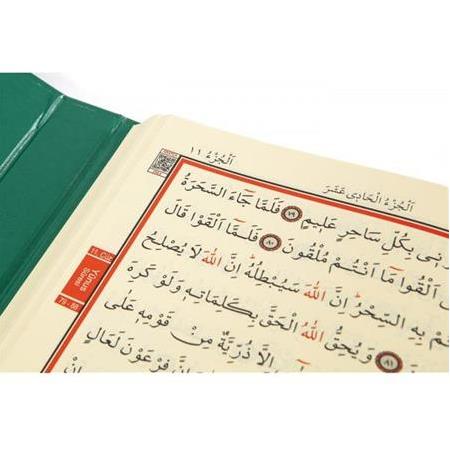 اَلْجُزْءُ ١١
اَلْجُزْءُ الْحَادِي عَشَرَ
بِكُلِّ سَاحِرٍ عَلِيمٍ ٧٩ فَلَمَّا جَاءَ السَّحَرَةُ
اَلْقُوا مَا اَنْتُمْ مُلْقُونَ ٨٠ فَلَمَّا اَلْقَوْا قَالَ
بِهِ السِّحْرُ اِنَّ اللّٰهَ سَيُبْطِلُهُ اِنَّ اللّٰهَ لَا يُصْلِحُ
٨١ وَيُحِقُّ اللّٰهُ الْحَقَّ بِكَلِمَاتِهِ وَلَوْ كَرِهَ
اِلَّا ذُرِّيَّةٌ مِنْ قَوْمِهِ عَلٰى
فِرْعَوْنَ لَعَالٍ
11. Cüz
Yûnus
Sûresi